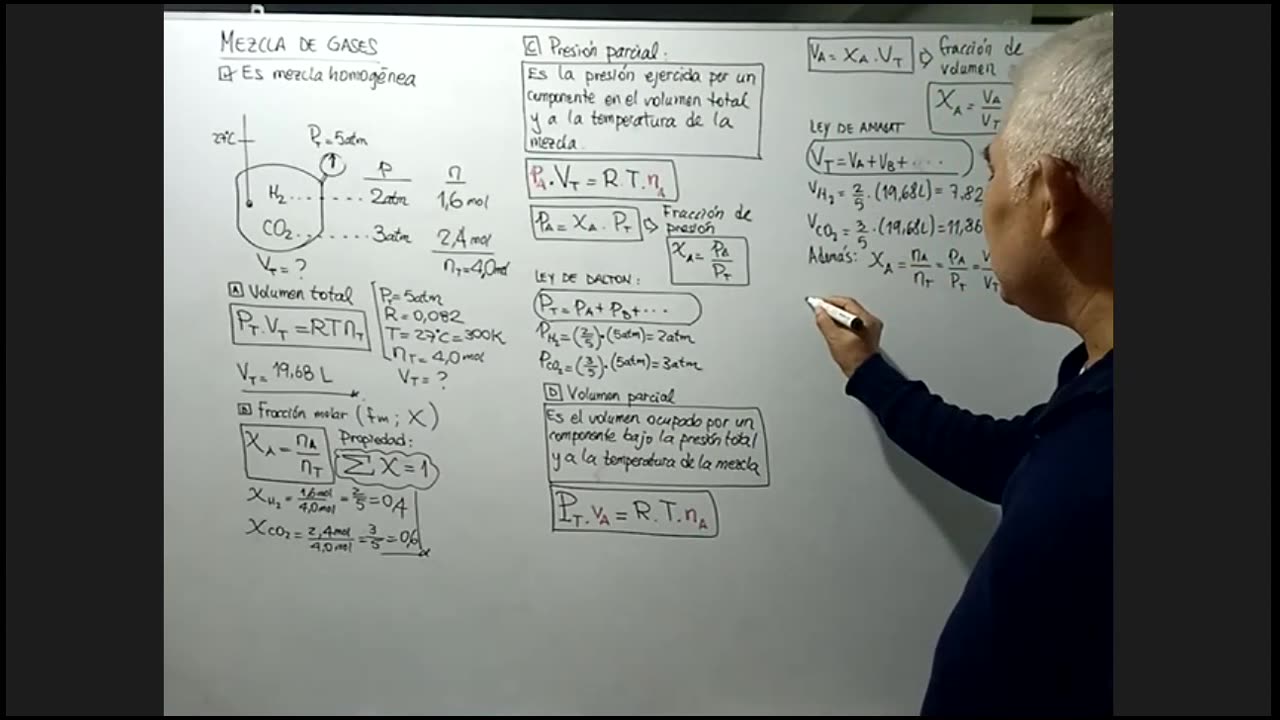 MEZCLA DE GASES
Es mezcla homogénea
27°C
P_T = 5atm
p
n
H₂ ...... 2atm 1,6 mol
CO₂ ...... 3atm 2,4 mol
V_T = ?
n_T = 4,0 mol
A Volumen total
P_T . V_T = RT n_T
P_T = 5atm
R = 0,082
T = 27°C = 300K
n_T = 4,0 mol
V_T = ?
V_T = 19,68 L
B Fracción molar (fm ; X)
X_A = n_A / n_T
Propiedad:
∑ X = 1
X_H₂ = 1,6mol / 4,0mol = 2/5 = 0,4
X_CO₂ = 2,4mol / 4,0mol = 3/5 = 0,6
C Presión parcial:
Es la presión ejercida por un
componente en el volumen total
y a la temperatura de la
mezcla.
P_A . V_T = R.T. n_A
P_A = X_A . P_T
Fracción de
presión
X_A = P_A / P_T
LEY DE DALTON:
P_T = P_A + P_B + ...
P_H₂ = (2/5).(5atm) = 2atm
P_CO₂ = (3/5).(5atm) = 3atm
D Volumen parcial
Es el volumen ocupado por un
componente bajo la presión total
y a la temperatura de la mezcla
P_T . V_A = R.T. n_A
V_A = X_A . V_T
fracción de
volumen
X_A = V_A / V_T
LEY DE AMAGAT
V_T = V_A + V_B + ....
V_H₂ = 2/5 .(19,68L) = 7.82
V_CO₂ = 3/5 .(19,68L) = 11,86
Además: X_A = n_A / n_T = P_A / P_T = V / V_T